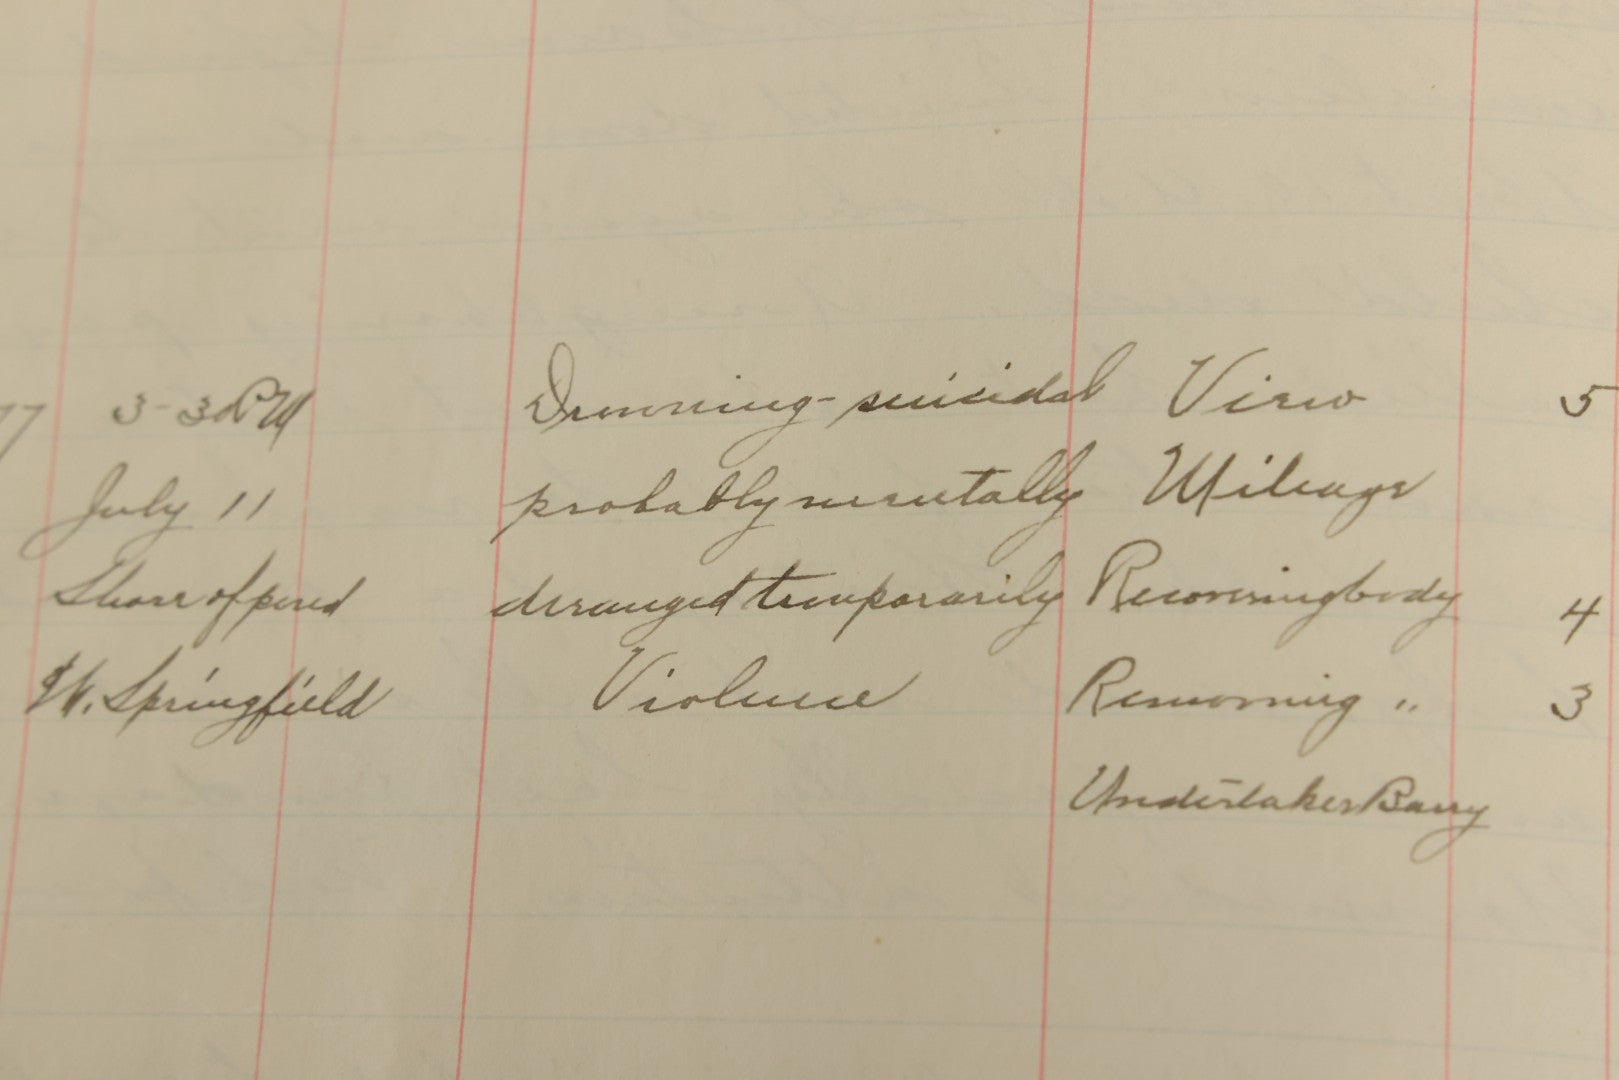 77 3-30 PM Drowning - suicidal View 5
July 11 probably mentally Mileage
Shore of pond deranged temporarily Recovering body 4
W. Springfield Violence Removing " 3
Undertaker Barry